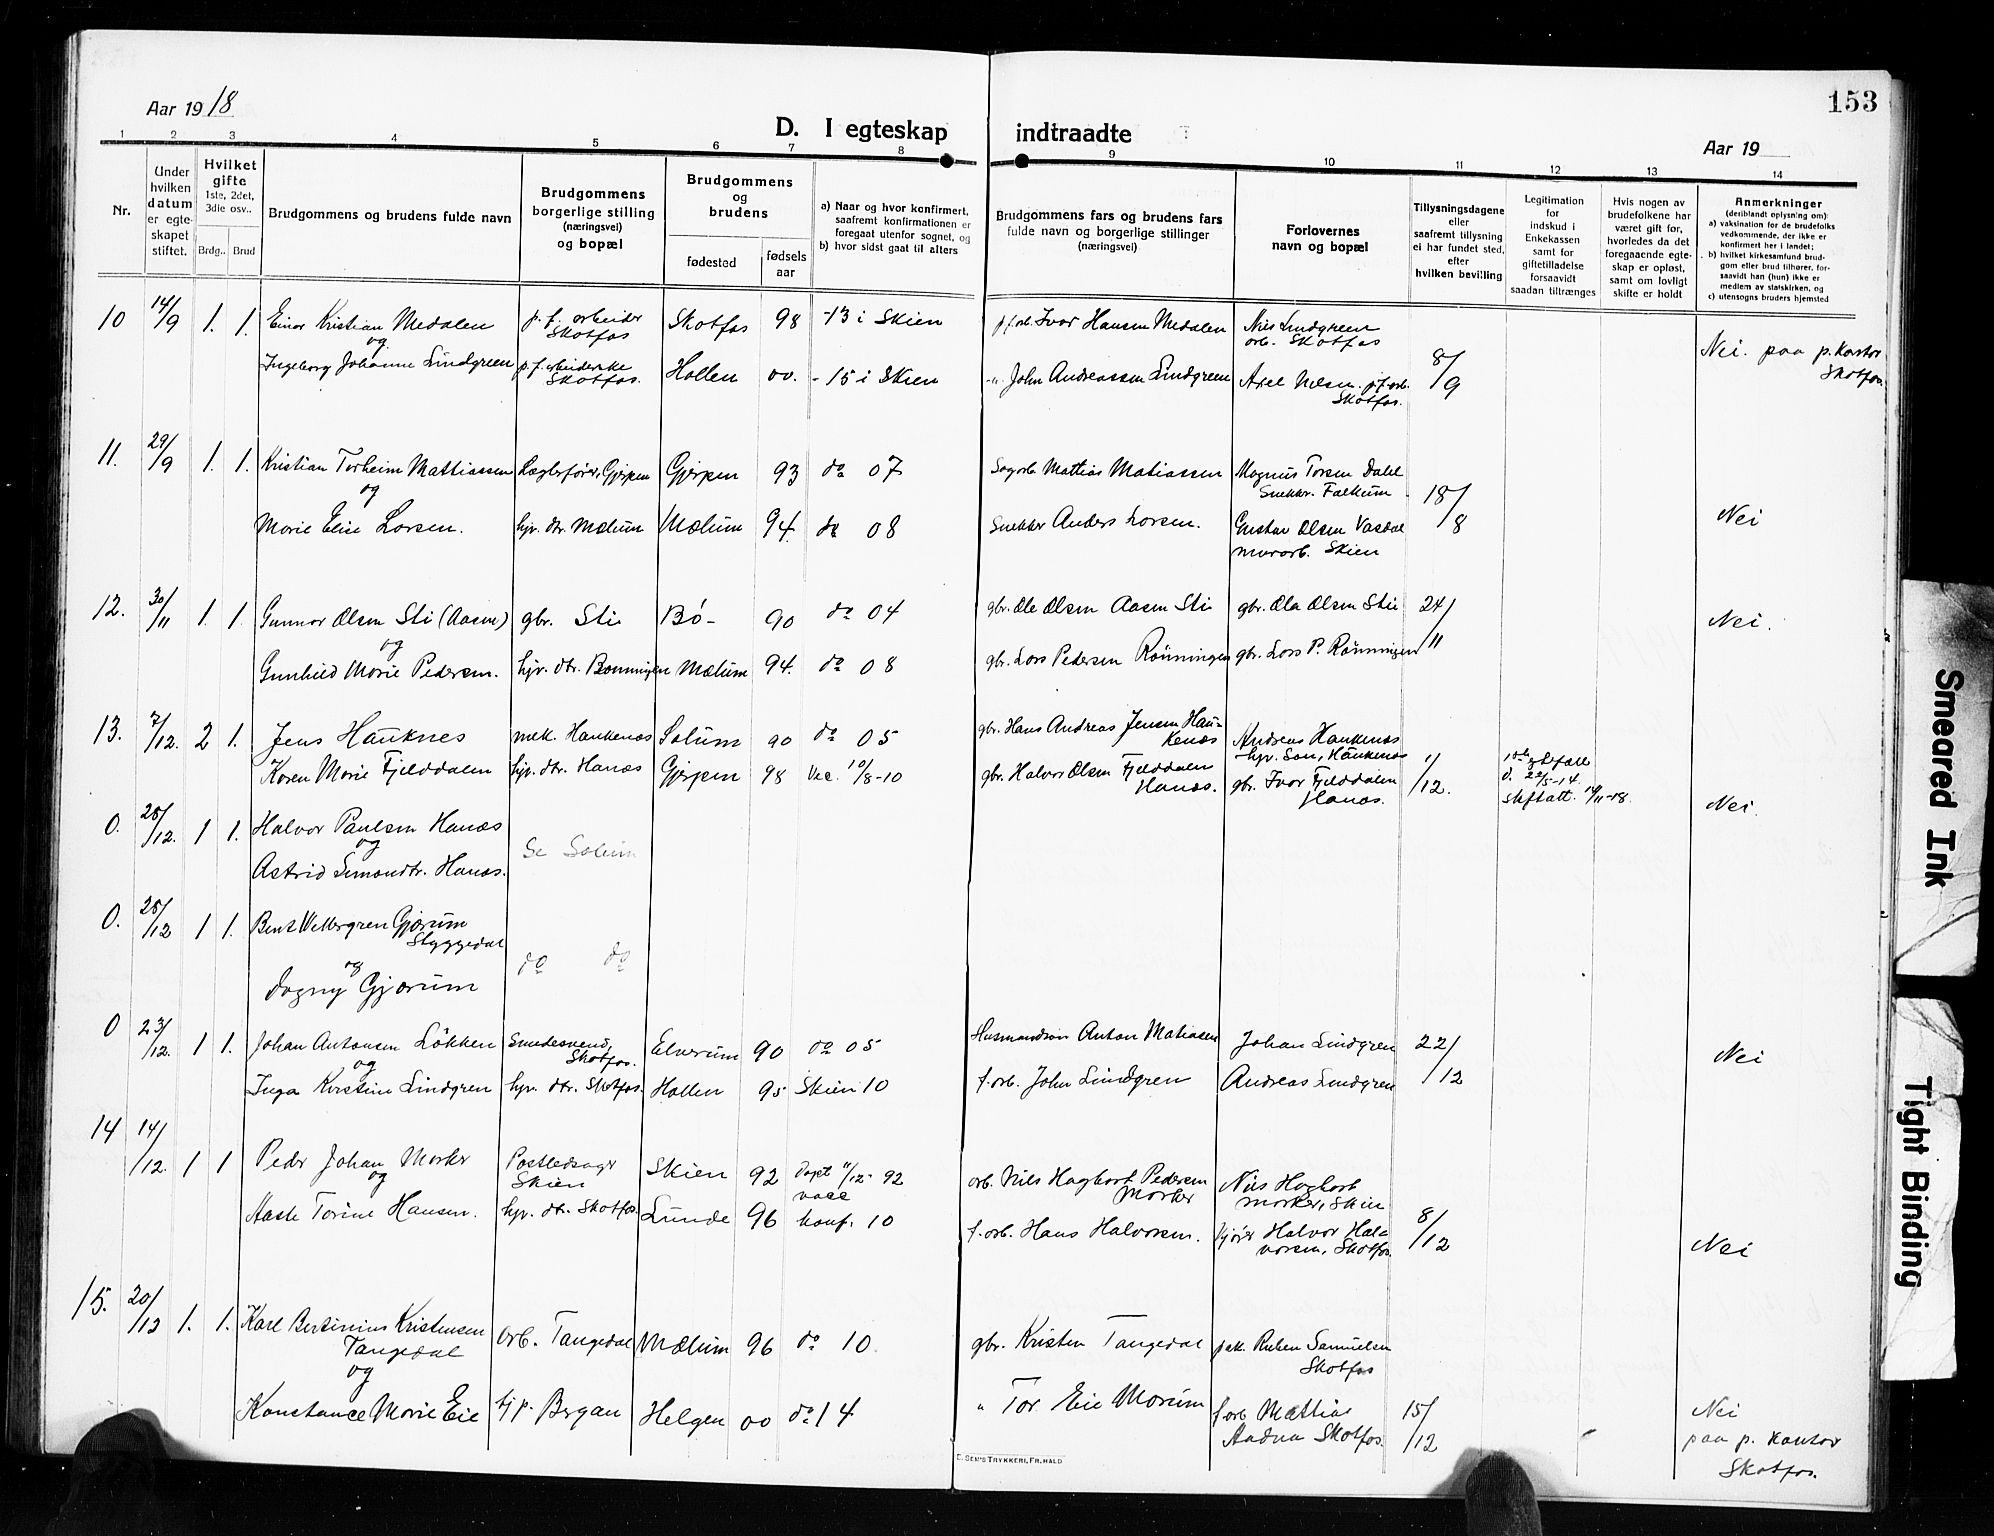 Aar 1918
153
D. I egteskap indtraadte
Aar 19
1 2 3 4 5 6 7 8 9 10 11 12 13 14
Nr.
Under hvilken datum er egteskapet stiftet.
Hvilket gifte 1ste, 2det, 3die osv..
Brdg.. Brud
Brudgommens og brudens fulde navn
Brudgommens borgerlige stilling (næringsvei) og bopæl
Brudgommens og brudens
fødested
fødsels aar
a) Naar og hvor konfirmert, saafremt konfirmationen er foregaat utenfor sognet, og
b) hvor sidst gaat til alters
Brudgommens fars og brudens fars fulde navn og borgerlige stillinger (næringsvei)
Forlovernes navn og bopæl
Tillysningsdagene eller saafremt tillysning ei har fundet sted, efter hvilken bevilling
Legitimation for indskud i Enkekassen samt for giftetilladelse forsaavidt saadan tiltrænges
Hvis nogen av brudefolkene har været gift før, hvorledes da det foregaaende egteskap er opløst, samt om lovligt skifte er holdt
Anmerkninger (deriblandt oplysning om):
a) vaksination for de brudefolks vedkommende, der ikke er konfirmert her i landet;
b) hvilket kirkesamfund brudgom eller brud tilhører, forsaavidt han (hun) ikke er medlem av statskirken, og
c) utensogns bruders hjemsted
10 14/9 1. 1. Einar Kristian Medalen p. f. arbeider Skotfos Skotfos 98 -13 i Skien p.f.arb. Ivar Hansen Medalen Nils Lindgreen arb. Skotfos
og
Ingeborg Johanne Lindgreen p.f. arbeiderske Skotfos. Hollen 00. -15 i Skien -"- John Andreassen Lindgreen Axel Nilsen p.f.arb. Skotfos. 8/9 Nei. paa p. kontor Skotfos.
11. 29/9 1. 1. Kristian Torheim Mattiassen Lægterfører, Gjerpen Gjerpen 93 do 07 Sagarb. Mattias Matiassen Magnus Torsen Dahl Snekker. Falkum
og
Marie Elise Larsen. hjv. dtr. Mælum Mælum 94. do 08 Snekker Anders Larsen. Gustav Olsen Vasdal murarb. Skien 18/8 Nei
12. 30/11 1. 1. Gunnar Olsen Sti (Aasen) gbr. Sti Bø - 90 do 04 gbr. Ole Olsen Aasen Sti gbr. Ola Olsen Sti 24/11 Nei.
og
Gunhild Marie Pedersen. hjv. dtr. Rønningen Mælum 94. do 08 gbr. Lars Pedersen Rønningen gbr. Lars P. Rønningen
13. 7/12. 2 1. Jens Hauknes mek. Haukenæs Solum 90 do 05 gbr. Hans Andreas Jensen Haukenæs Andreas Haukenæs hjv. Søn, Haukenæs
Karen Marie Fjelddalen hjv. dtr. Hanæs Gjerpen 98 Vac. 10/8-10 gbr. Halvor Olsen Fjelddalen Hanæs. gbr. Ivar Fjelddalen Hanæs. 1/12. d. 22/5-14 skiftatt. 14/11-18. Nei.
0. 28/12. 1 1. Halvor Paulsen Hanæs
og
Astrid Simondtr. Hanæs. Se Solum
0. 28/12 1 1. Bent Wettergren Gjærum Styggedal
og
Dagny Gjærum do do
0 23/12. 1 1. Johan Antonsen Løkken Smedesvend, Skotfos. Elverum 90 do 05 Husmandsøn Anton Matiasen Johan Lindgren 22/12 Nei
og
Inga Kristine Lindgren hjv. dtr. Skotfos. Hollen 95 Skien 10 f.arb. John Lindgren Andreas Lindgren
14 14/12. 1 1 Peder Johan Mørker Postledsager Skien Skien 92 Døpt 11/12- 92 arb. Nils Hagbart Pedersen Mørker Nils Hagbart Mørker, Skien
og vacc
Aaste Torine Hansen. hjv. dtr. Skotfos. Lunde 96 konf. 10 f.arb. Hans Halvorsen. kjører Halvor Halvorsen, Skotfos. 8/12 Nei
15. 20/12 1. 1. Karl Bertinius Kristensen Tangedal arb. Tangedal Mælum 96 do 10. gbr. Kristen Tangedal pak. Ruben Samuelsen Skotfos
og
Konstance Marie Eie tjp. Bergan Helgen 00 do 14 " Tor Eie Mørum f.arb Mattias Aadna Skotfos. 15/12 Nei paa p. kontor Skotfos.
E. SEM'S TRYKKERI, FR.HALD
Smeared Ink
Tight Binding